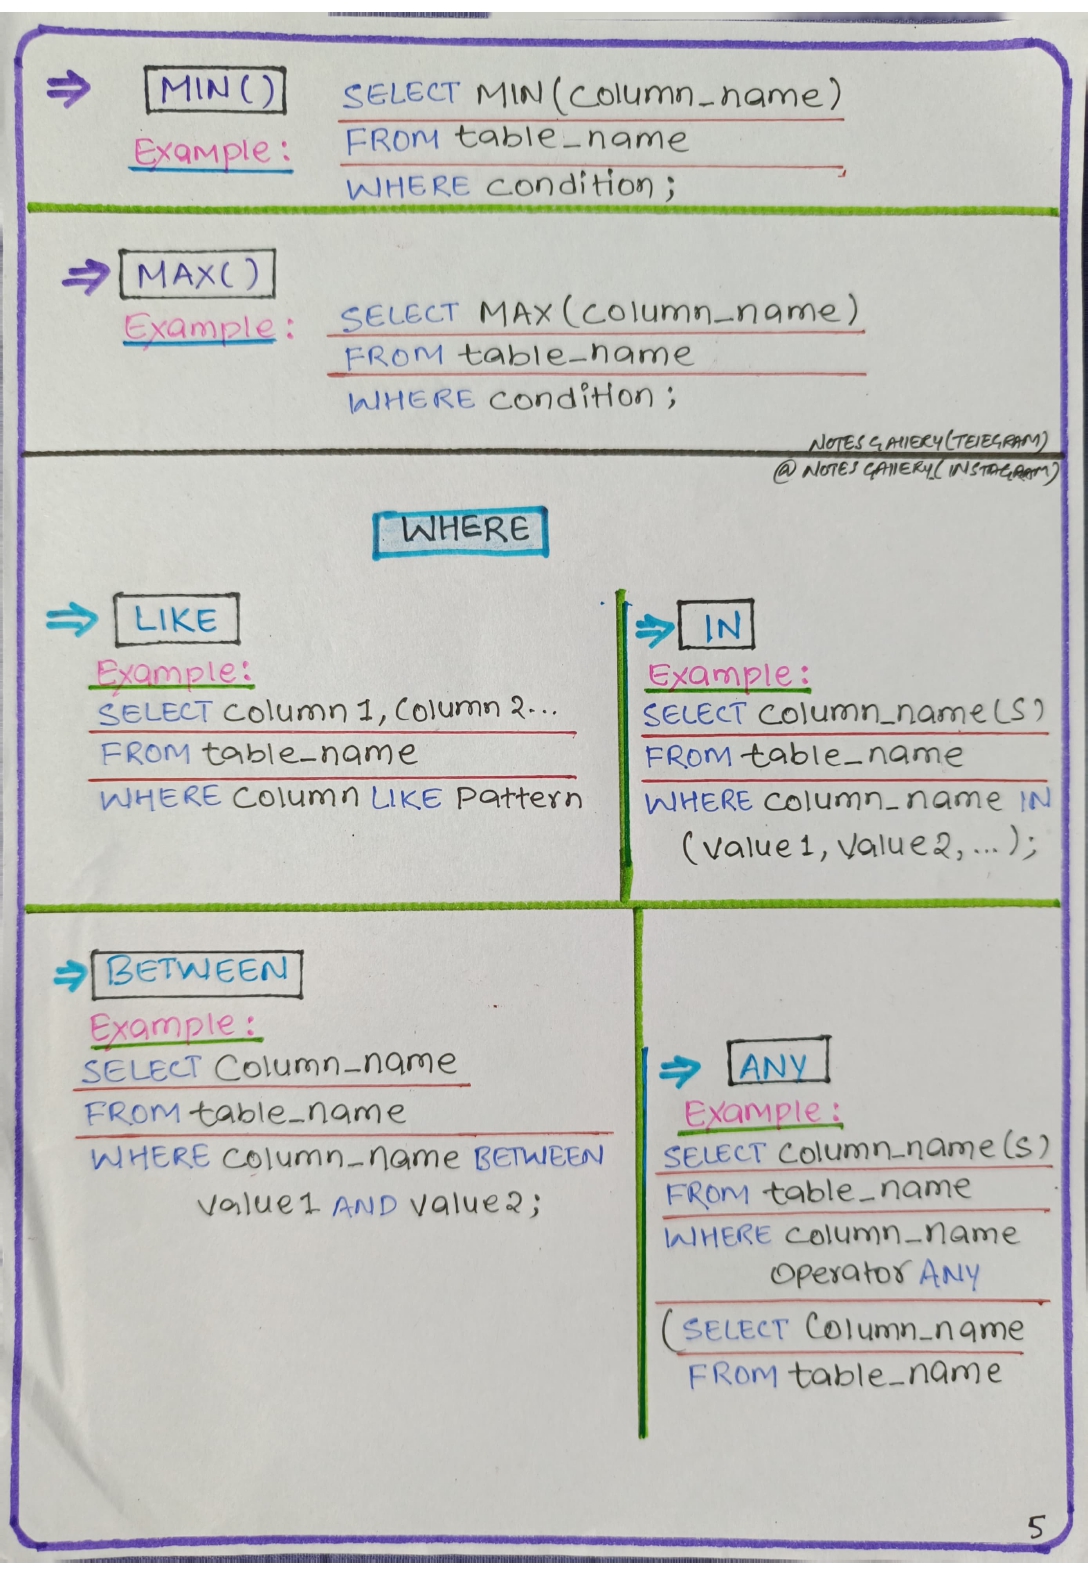 ⇒ MIN()
Example:
SELECT MIN(column_name)
FROM table_name
WHERE condition;
⇒ MAX()
Example:
SELECT MAX(column_name)
FROM table_name
WHERE condition;
NOTES GAllERY(TElEGRAM)
@ NOTES GAllERY(INSTAGRAM)
WHERE
⇒ LIKE
Example:
SELECT Column 1, Column 2...
FROM table_name
WHERE Column LIKE Pattern
⇒ IN
Example:
SELECT column_name(s)
FROM table_name
WHERE column_name IN
(value1, value2, ...);
⇒ BETWEEN
Example:
SELECT Column_name
FROM table_name
WHERE column_name BETWEEN
value1 AND value2;
⇒ ANY
Example:
SELECT column_name(s)
FROM table_name
WHERE column_name
Operator ANY
(SELECT Column_name
FROM table_name
5